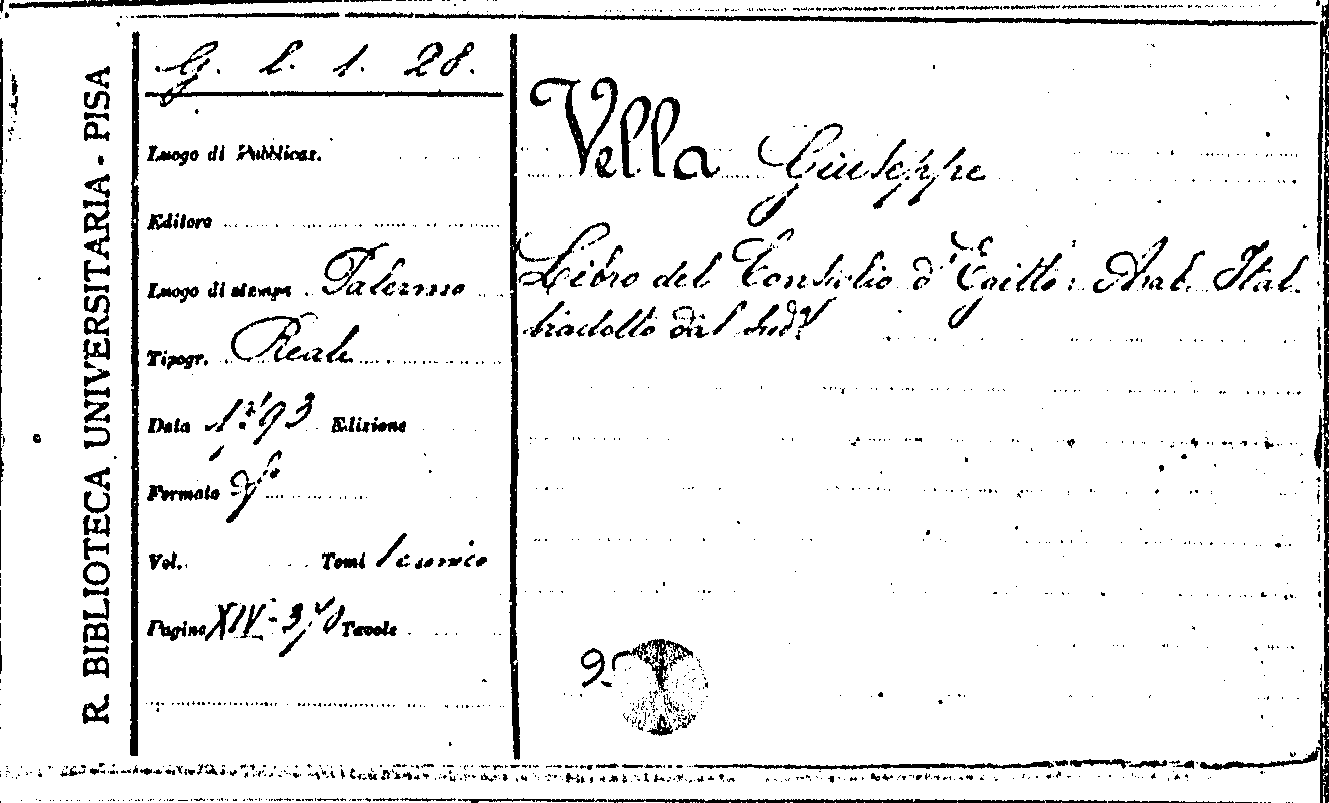 R. BIBLIOTECA UNIVERSITARIA - PISA
G. l. 1. 28.
Luogo di Pubblicaz.
Editore
Luogo di stampa Palermo
Tipogr. Reale
Data 1793 Edizione
Formato fº
Vol. Tomi 1 unico
Pagine XIV-370 Tavole
Vella Giuseppe
Libro del Consiglio d'Egitto: Arab. Ital.
tradotto dal sudº